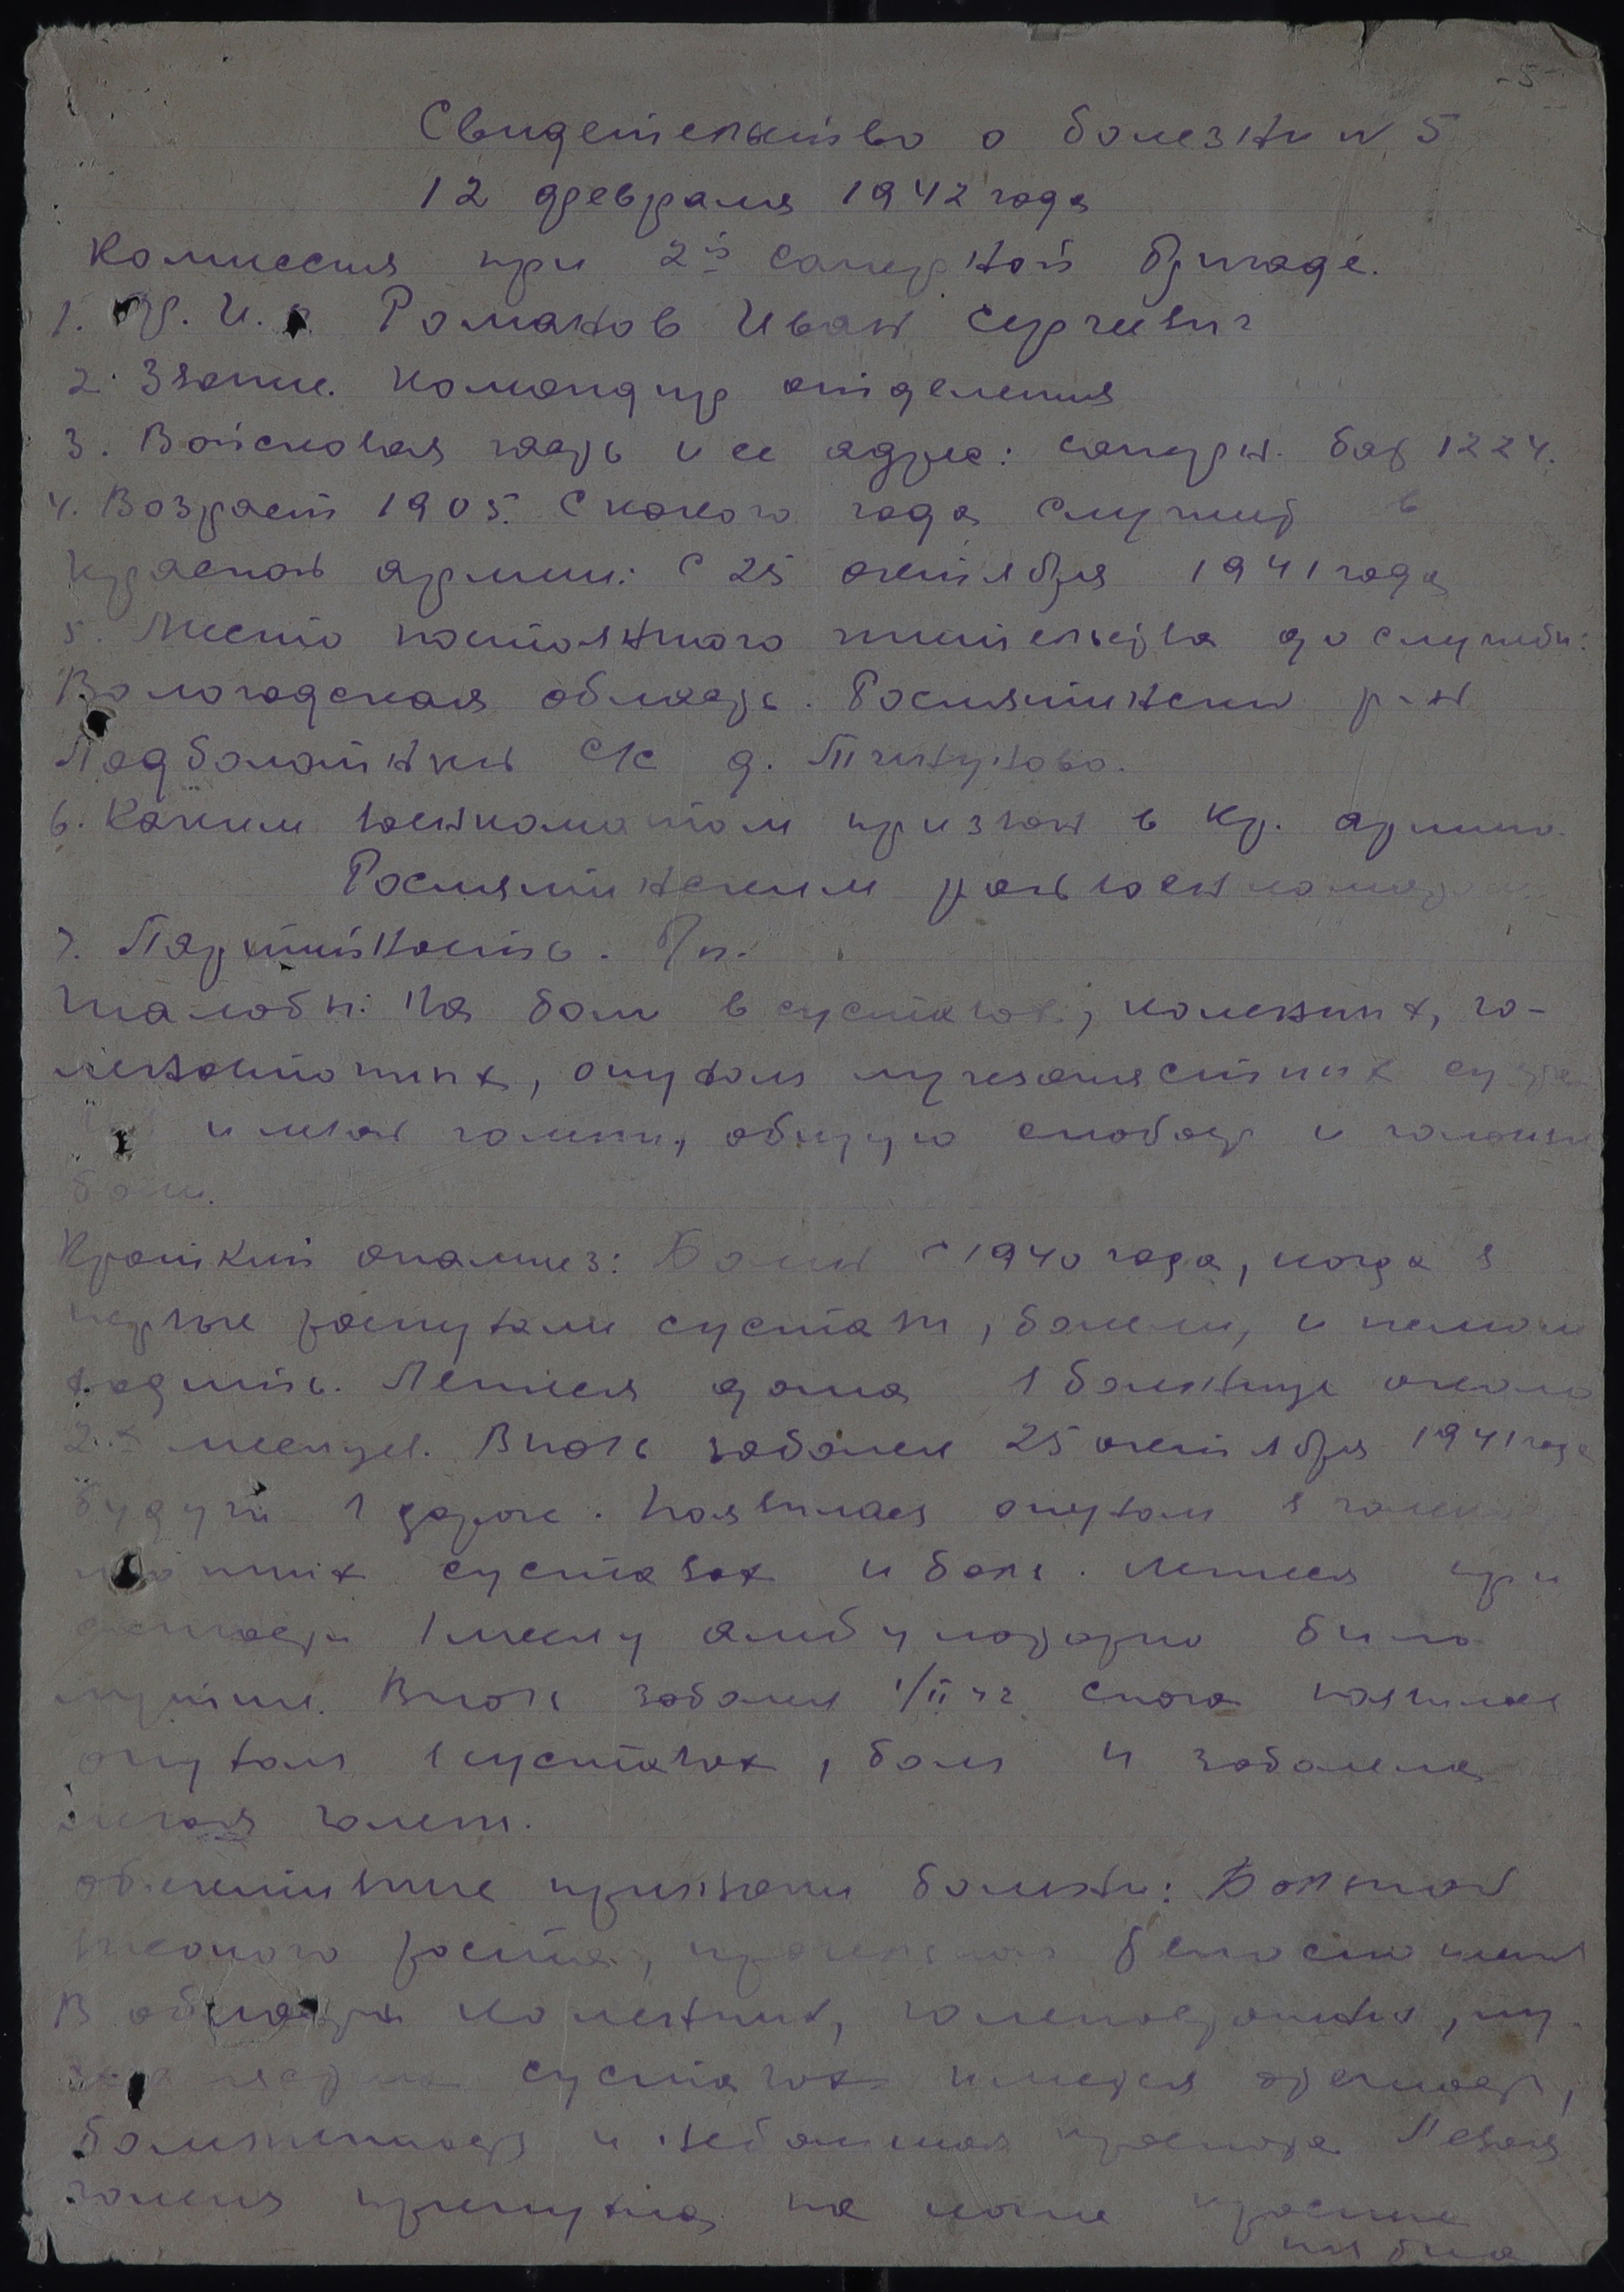 -5-
Свидетельство о болезни N 5
12 февраля 1942 года
Комиссия при 2й саперной бригаде.
1. Ф. И. о. Романов Иван Сергеевич
2. Звание. Командир отделения
3. Войсковая часть и ее адрес: саперн. бат 1224.
4. Возраст 1905. С какого года служит в
Красной армии: С 25 октября 1941 года
5. Место постоянного жительства до службы:
Вологодская область. Рослятински р-н
Подболотный С/С д.
6. Каким военкоматом призван в Кр. армию.
Рослятинским райвоенкоматом
7. Партийность. Б/п.
Жалобы: На боли в суставах, коленных, го-
леностопных, опухоли лучезапястных суста
и левой голени, общую слабость и головные
боли.
Краткий анамнез: Болен с 1940 года, когда в
первые распухали суставы, болели, и не мог
ходить. Лечился дома в больнице около
2х месяцев. Вновь заболел 25 октября 1941 года
будучи в дороге. Появилась опухоль в голено
стопных суставах и боль. Лечился при
1 месяц амбулаторно было
лучше. Вновь заболел 1/II 42 снова появилась
опухоль в суставах, боль и заболела
левая голень.
Объективные признаки болезни: Больной
высокого роста,
В области коленных, голеностопных, лу-
суставах имеется отечность,
болезненность и небольшая краснота. Левая
голень припухла, на коже красные
пятна